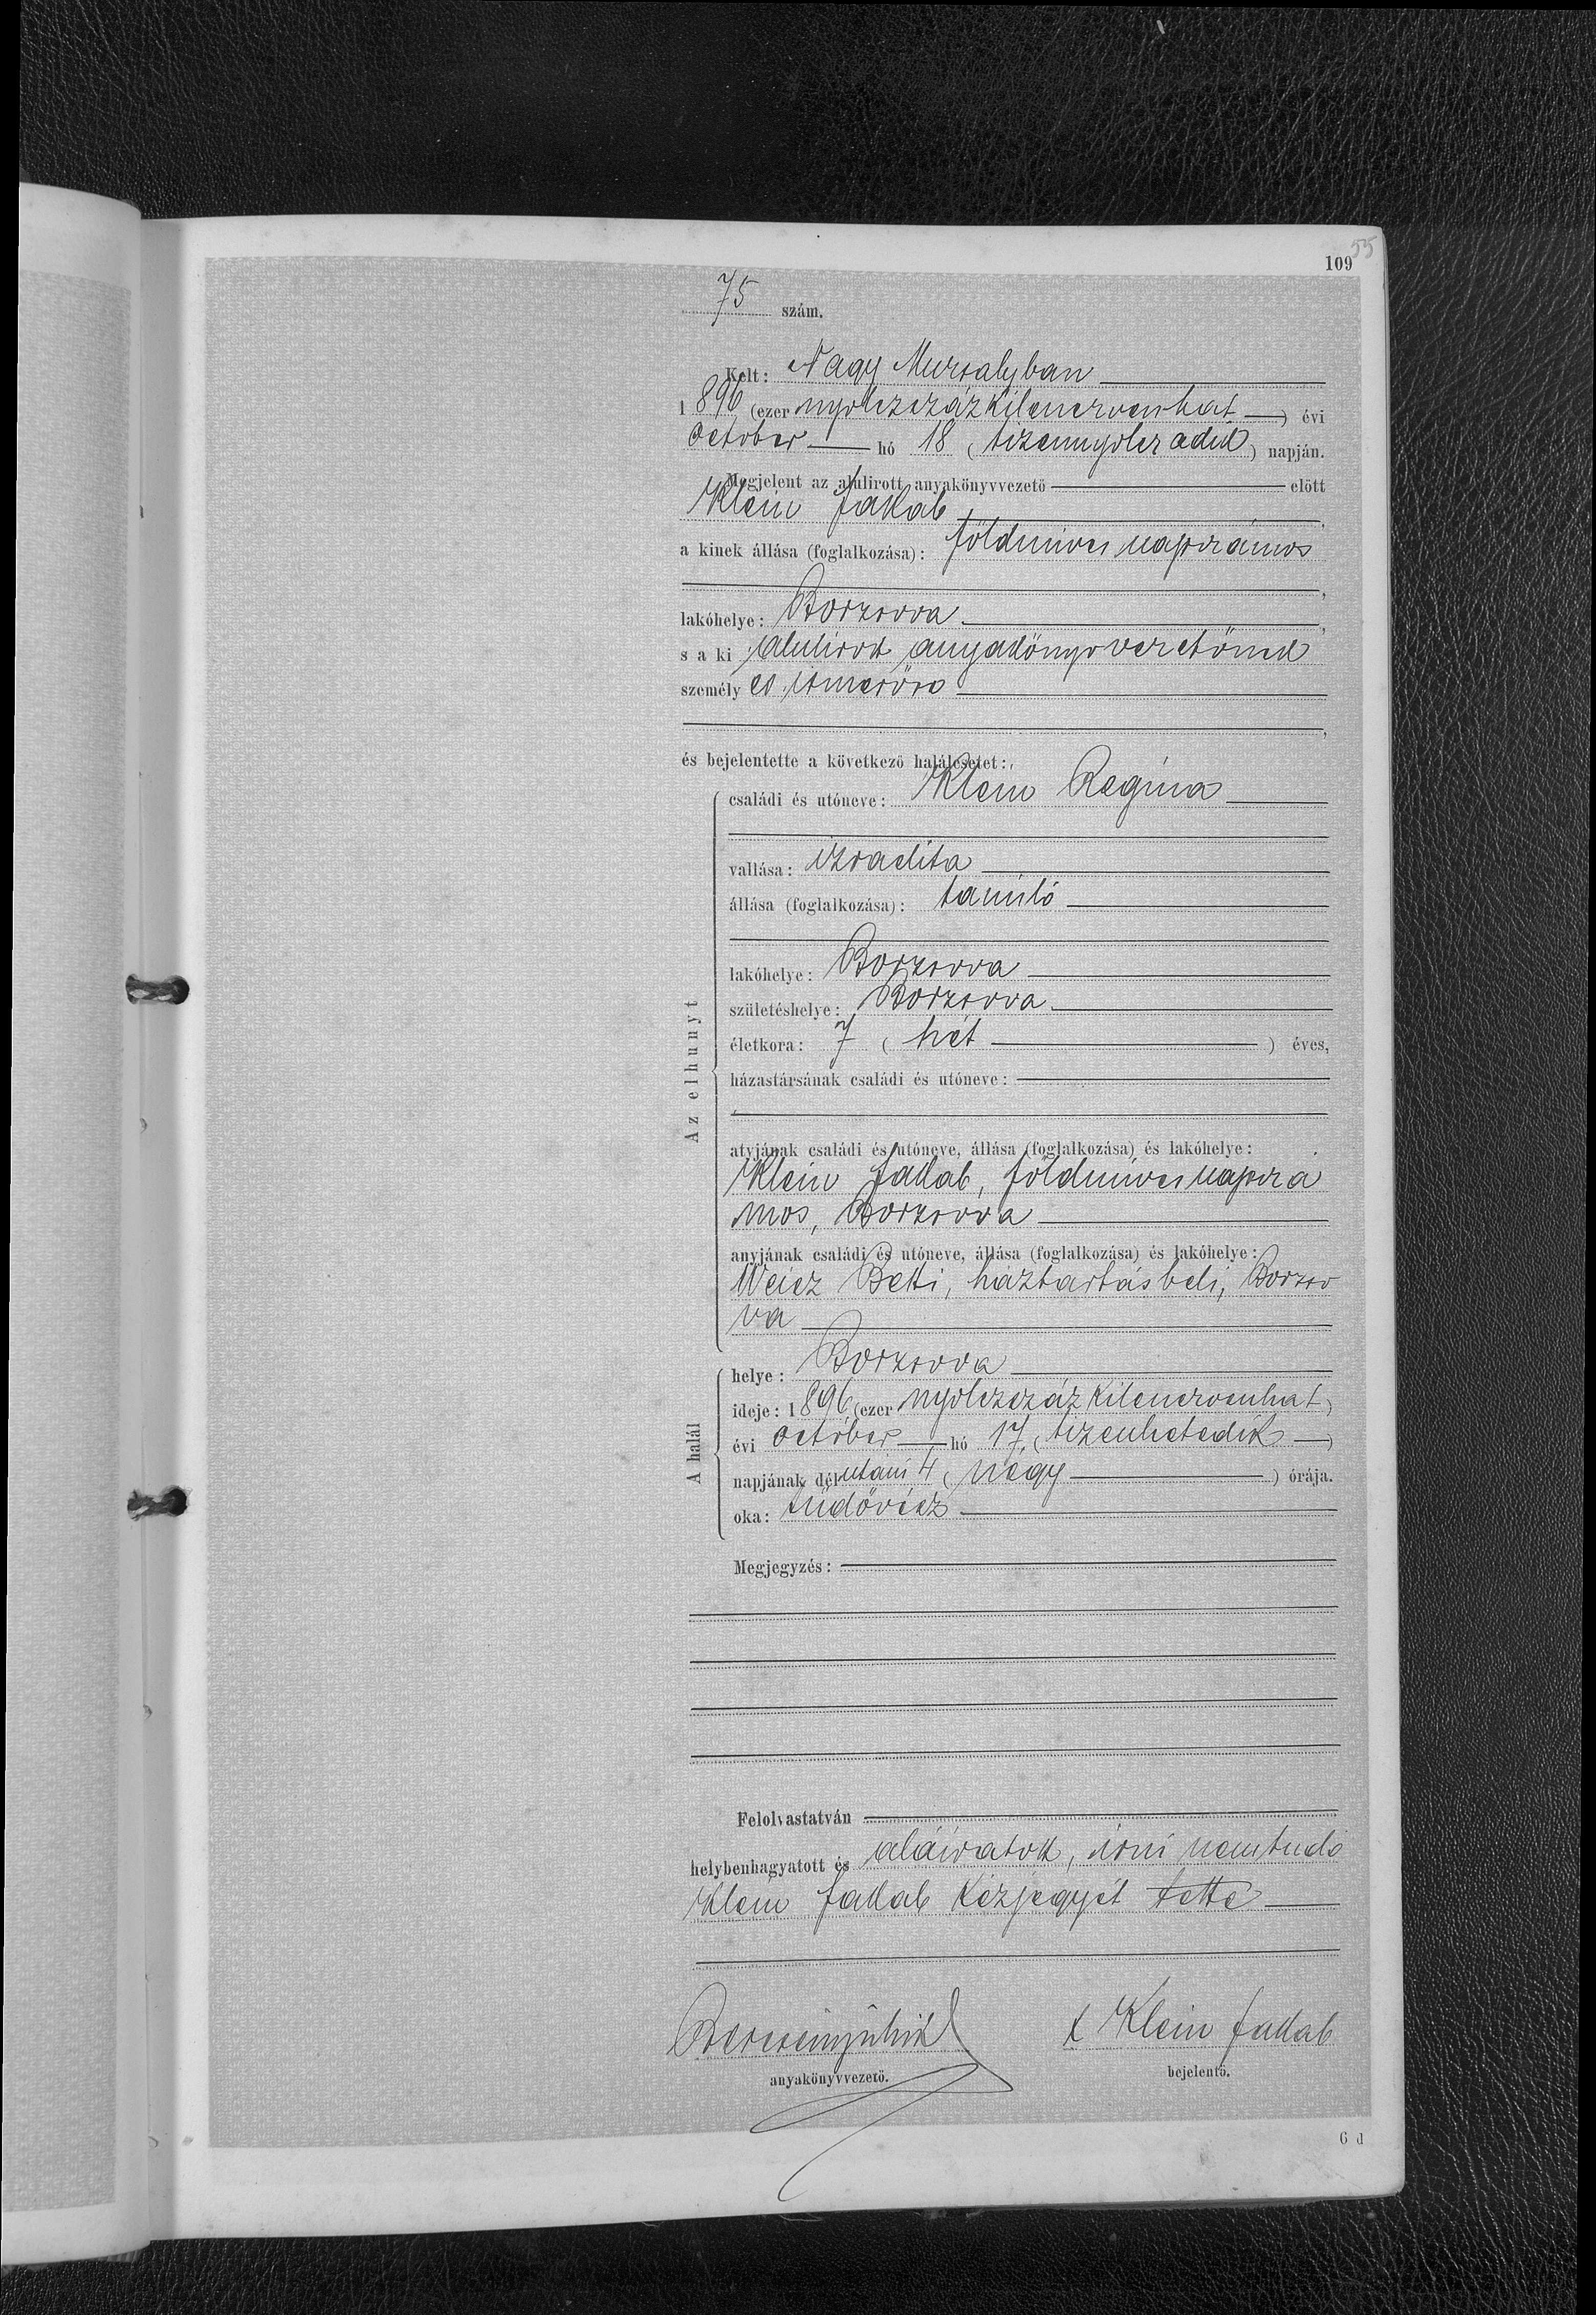 109
55
75 szám.
Kelt: Nagy Muzsalyban
1896 (ezer nyolczszázkilenczvenhat) évi
october hó 18 (tizennyolczadik) napján.
Megjelent az alulirott anyakönyvvezető előtt
Klein Jakab,
a kinek állása (foglalkozása): földmives napszámos
,
lakóhelye: Borzsova,
s a ki alulirott anyakönyvvezetőnek
személyes ismerőse
,
és bejelentette a következő halálesetet:
Az elhunyt
családi és utóneve: Klein Regina
vallása: izraelita
állása (foglalkozása): tanuló
lakóhelye: Borzsova
születéshelye: Borzsova
életkora: 7 (hét) éves,
házastársának családi és utóneve:
atyjának családi és utóneve, állása (foglalkozása) és lakóhelye:
Klein Jakab, földmives napszá
mos, Borzsova
anyjának családi és utóneve, állása (foglalkozása) és lakóhelye:
Weisz Betti, háztartásbeli, Borzso
va
A halál
helye: Borzsova
ideje: 1896 (ezer nyolczszázkilenczvenhat)
évi october hó 17 (tizenhetedik)
napjának délutáni 4 (négy) órája.
oka: tüdővész
Megjegyzés:
Felolvastatván
helybenhagyatott és aláiratott, irni nem tudó
Klein Jakab kézjegyét tette
x Klein Jakab
anyakönyvvezető.
bejelentő.
6 d